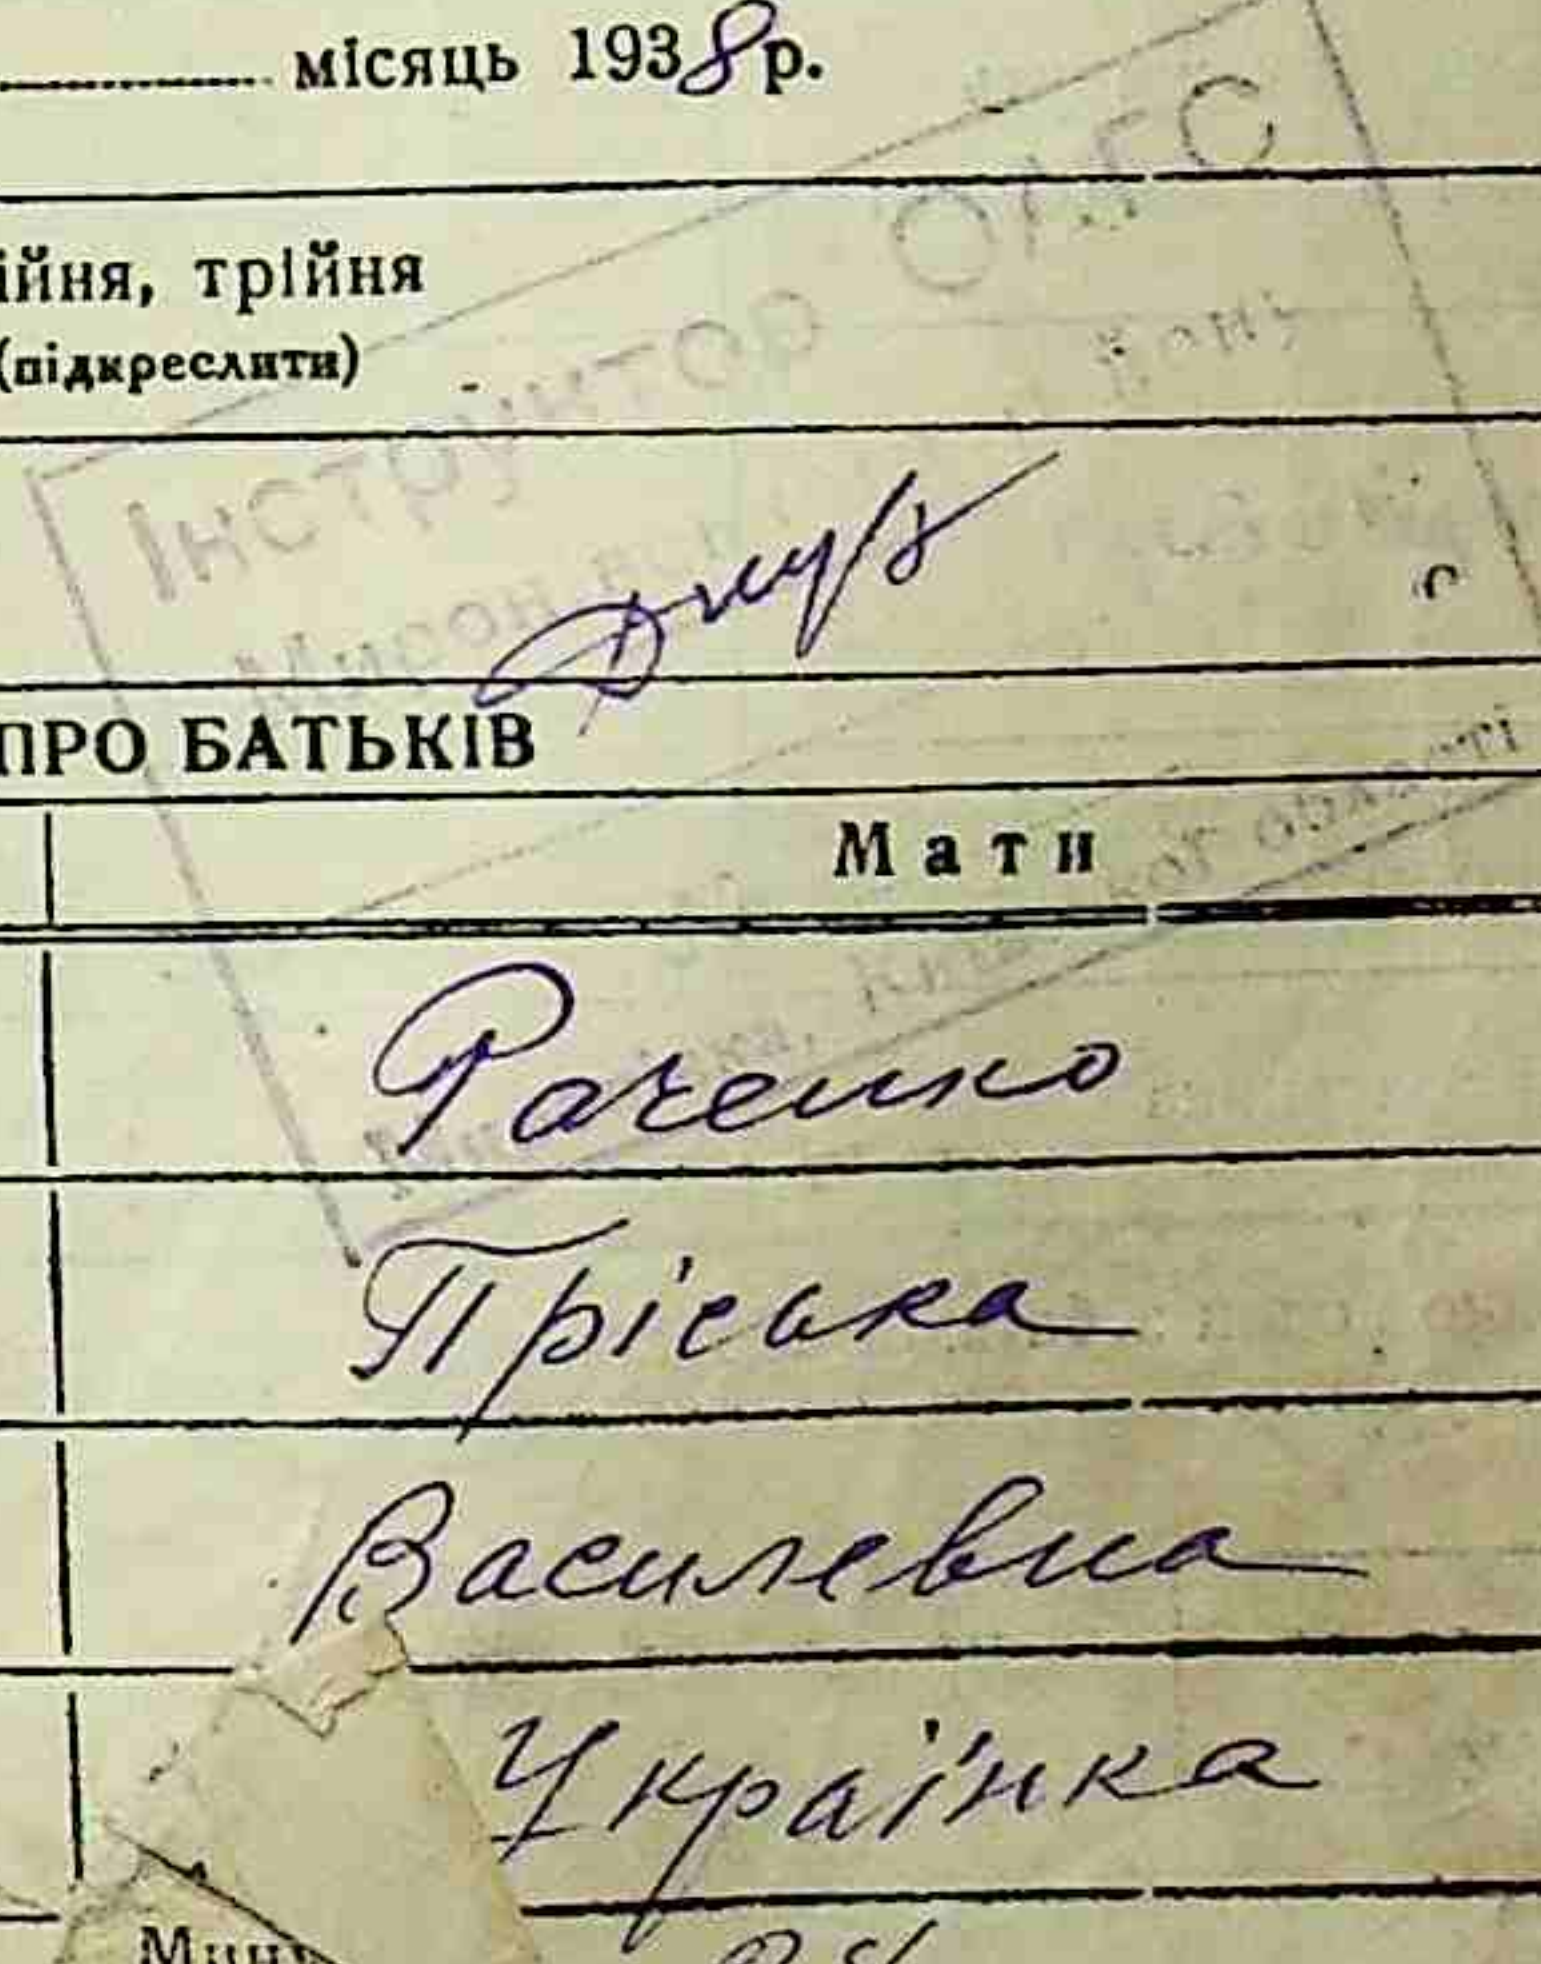 місяць 1938 р.
ійня, трійня
(підкреслити)
Інструктор ОАГС
ПРО БАТЬКІВ
Мати
області
Раченко
Пріська
Василевна
Українка